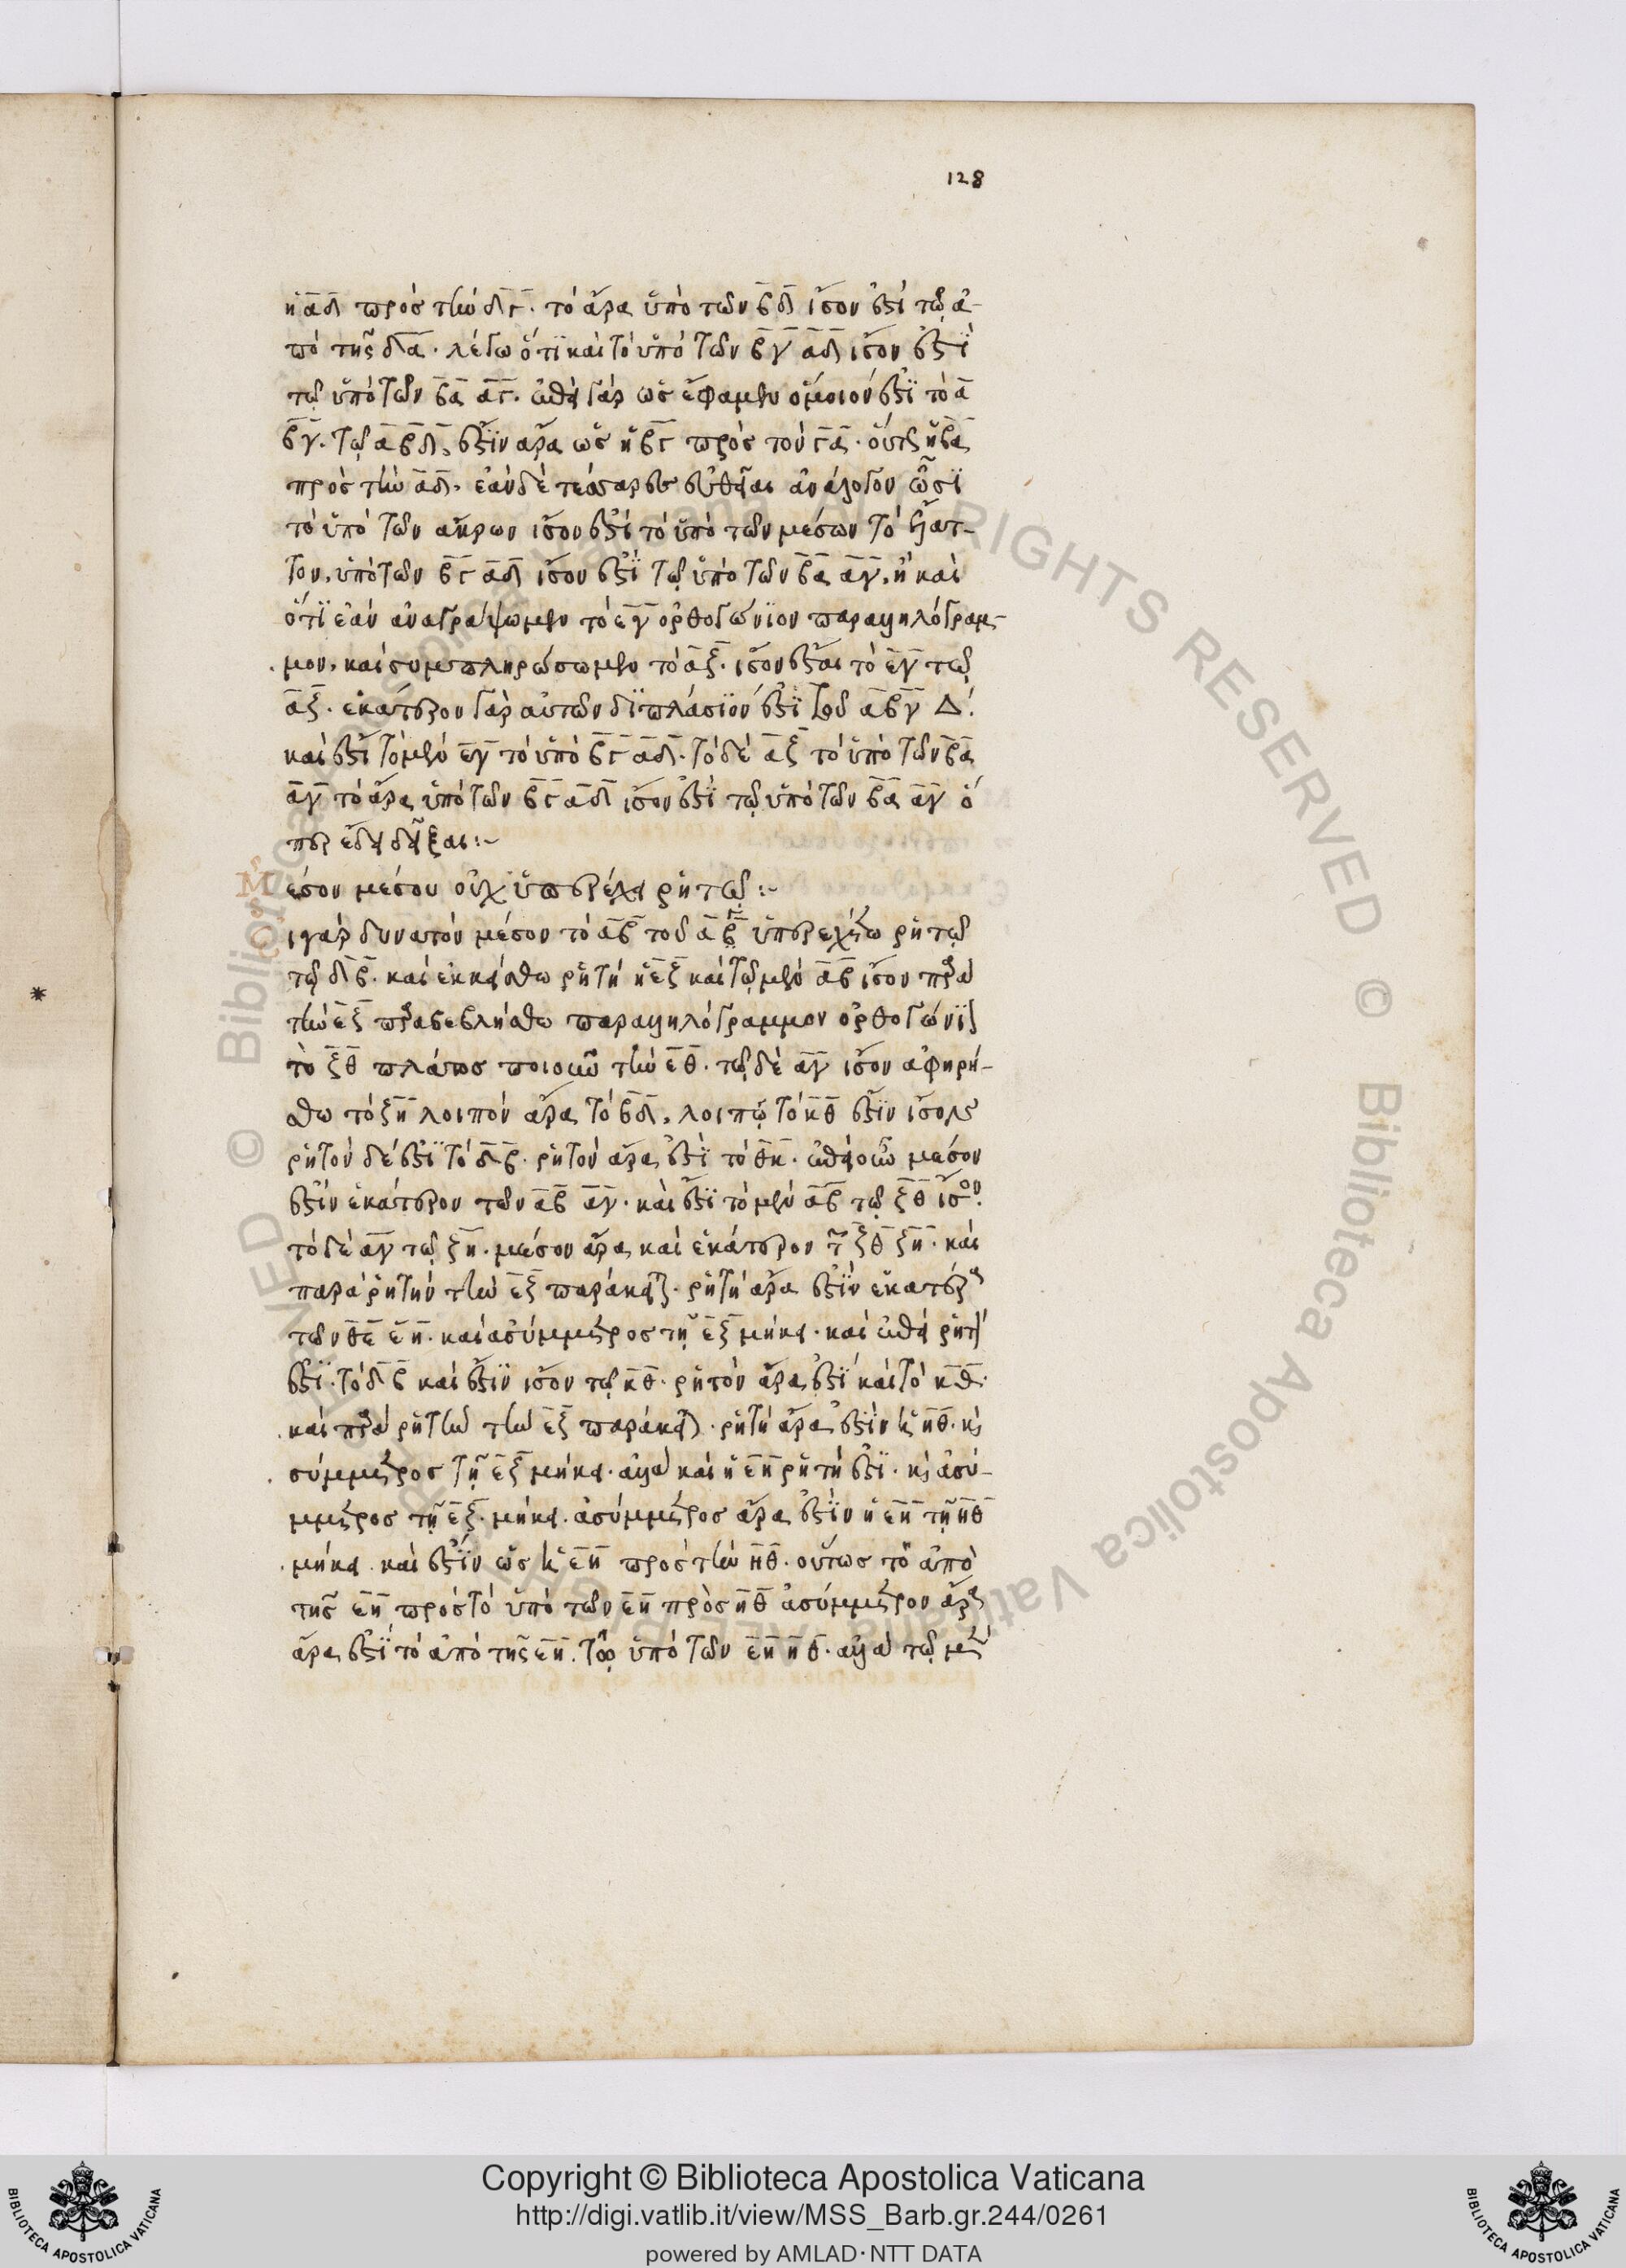 128
ἡ α̅δ̅ πρὸς τὴν δ̅γ̅. τὸ ἄρα ὑπὸ τῶν β̅δ̅ ἴσον ἐστὶ τῷ ἀ-
πὸ τῆς δ̅α̅. λέγω ὅτι καὶ τὸ ὑπὸ τῶν β̅γ̅ α̅δ̅ ἴσον ἐστὶ
τῷ ὑπὸ τῶν β̅α̅ α̅γ̅. ἐπεὶ γὰρ ὡς ἔφαμεν ὅμοιόν ἐστι τὸ α̅
β̅γ̅. τῷ α̅β̅δ̅, ἔστιν ἄρα ὡς ἡ β̅γ̅ πρὸς τὸν γ̅α̅. οὕτως ἡ β̅α̅
πρὸς τὴν α̅δ̅. ἐὰν δὲ τέσσαρες εὐθεῖαι ἀνάλογον ὦσι
τὸ ὑπὸ τῶν ἄκρων ἴσον ἐστὶ τὸ ὑπὸ τῶν μέσων τὸ
ὑπὸ τῶν β̅γ̅ α̅δ̅ ἴσον ἐστὶ τῷ ὑπὸ τῶν β̅α̅ α̅γ̅. ἢ καὶ
ὅτι ἐὰν ἀναγράψωμεν τὸ ε̅γ̅ ὀρθογώνιον παραλληλόγραμ-
μον, καὶ συμπληρώσωμεν τὸ α̅ξ̅. ἴσον ἔσται τὸ ε̅γ̅ τῷ
α̅ξ̅. ἑκάτερον γὰρ αὐτῶν διπλάσιόν ἐστι τοῦ α̅β̅γ̅ Δ.
καὶ ἔστι τὸ μὲν ε̅γ̅ τὸ ὑπὸ β̅γ̅ α̅δ̅. τὸ δὲ α̅ξ̅ τὸ ὑπὸ τῶν β̅α̅
α̅γ̅ τὸ ἄρα ὑπὸ τῶν β̅γ̅ α̅δ̅ ἴσον ἐστὶ τῷ ὑπὸ τῶν β̅α̅ α̅γ̅ ὅ
περ ἔδει δεῖξαι:~
Μέσον μέσου οὐχ ὑπερέχει ῥητῷ:~
Εἰ γὰρ δυνατὸν μέσον τὸ α̅β̅ τοῦ α̅γ̅ ὑπερεχέτω ῥητῷ
τῷ δ̅β̅. καὶ ἐκκείσθω ῥητὴ ἡ ε̅ξ̅ καὶ τῷ μὲν α̅β̅ ἴσον παρὰ
τὴν ε̅ξ̅ παραβεβλήσθω παραλληλόγραμμον ὀρθογώνιον
τὸ ξ̅θ̅ πλάτος ποιοῦν τὴν ε̅θ̅. τῷ δὲ α̅γ̅ ἴσον ἀφῃρή-
σθω τὸ ξ̅η̅ λοιπὸν ἄρα τὸ β̅δ̅, λοιπῷ τὸ κ̅θ̅ ἐστὶν ἴσον
ῥητὸν δέ ἐστι τὸ δ̅β̅. ῥητὸν ἄρα ἐστὶ τὸ θ̅κ̅. ἐπεὶ οὖν μέσον
ἐστὶν ἑκάτερον τῶν α̅β̅ α̅γ̅. καὶ ἔστι τὸ μὲν α̅β̅ τῷ ξ̅θ̅ ἴσον.
τὸ δὲ α̅γ̅ τῷ ξ̅η̅. μέσον ἄρα καὶ ἑκάτερον τῶν ξ̅θ̅ ξ̅η̅. καὶ
παρὰ ῥητὴν τὴν ε̅ξ̅ παράκειται. ῥητὴ ἄρα ἐστὶν ἑκατέρα
τῶν θ̅ε̅ ε̅η̅. καὶ ἀσύμμετρος τῇ ε̅ξ̅ μήκει. καὶ ἐπεὶ ῥητόν
ἐστι. τὸ δ̅β̅ καὶ ἔστιν ἴσον τῷ κ̅θ̅. ῥητὸν ἄρα ἐστὶ καὶ τὸ κ̅θ̅.
καὶ παρὰ ῥητὴν τὴν ε̅ξ̅ παράκειται. ῥητὴ ἄρα ἐστὶν ἡ η̅θ̅. καὶ
σύμμετρος τῇ ε̅ξ̅ μήκει. ἀλλὰ καὶ ἡ ε̅η̅ ῥητή ἐστι. καὶ ἀσύ-
μμετρος τῇ ε̅ξ̅. μήκει. ἀσύμμετρος ἄρα ἐστὶν ἡ ε̅η̅ τῇ η̅θ̅
μήκει. καὶ ἔστιν ὡς ἡ ε̅η̅ πρὸς τὴν η̅θ̅. οὕτως τὸ ἀπὸ
τῆς ε̅η̅ πρὸς τὸ ὑπὸ τῶν ε̅η̅ πρὸς η̅θ̅ ἀσύμμετρον ἄρα
ἄρα ἐστὶ τὸ ἀπὸ τῆς ε̅η̅. τῷ ὑπὸ τῶν ε̅η̅ η̅θ̅. ἀλλὰ τῷ μὲν
Copyright © Biblioteca Apostolica Vaticana
http://digi.vatlib.it/view/MSS_Barb.gr.244/0261
powered by AMLAD·NTT DATA